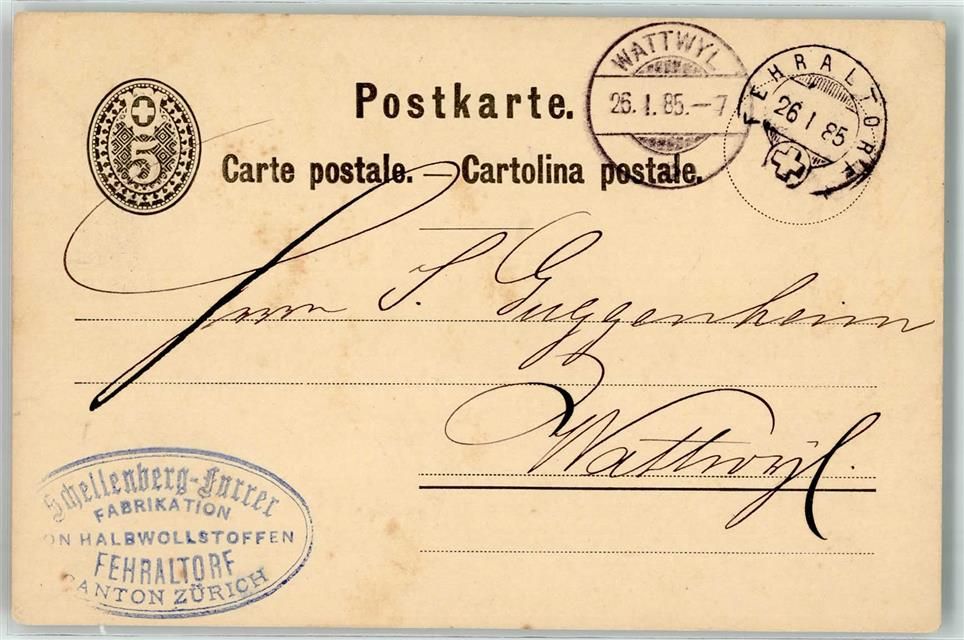 5
Postkarte.
Carte postale. — Cartolina postale.
WATTWYL
26. I. 85. – 7
FEHRALTORF
26 I 85
Herrn S. Guggenheim
Wattwyl.
Schellenberg-Furrer
FABRIKATION
ON HALBWOLLSTOFFEN
FEHRALTORF
CANTON ZÜRICH